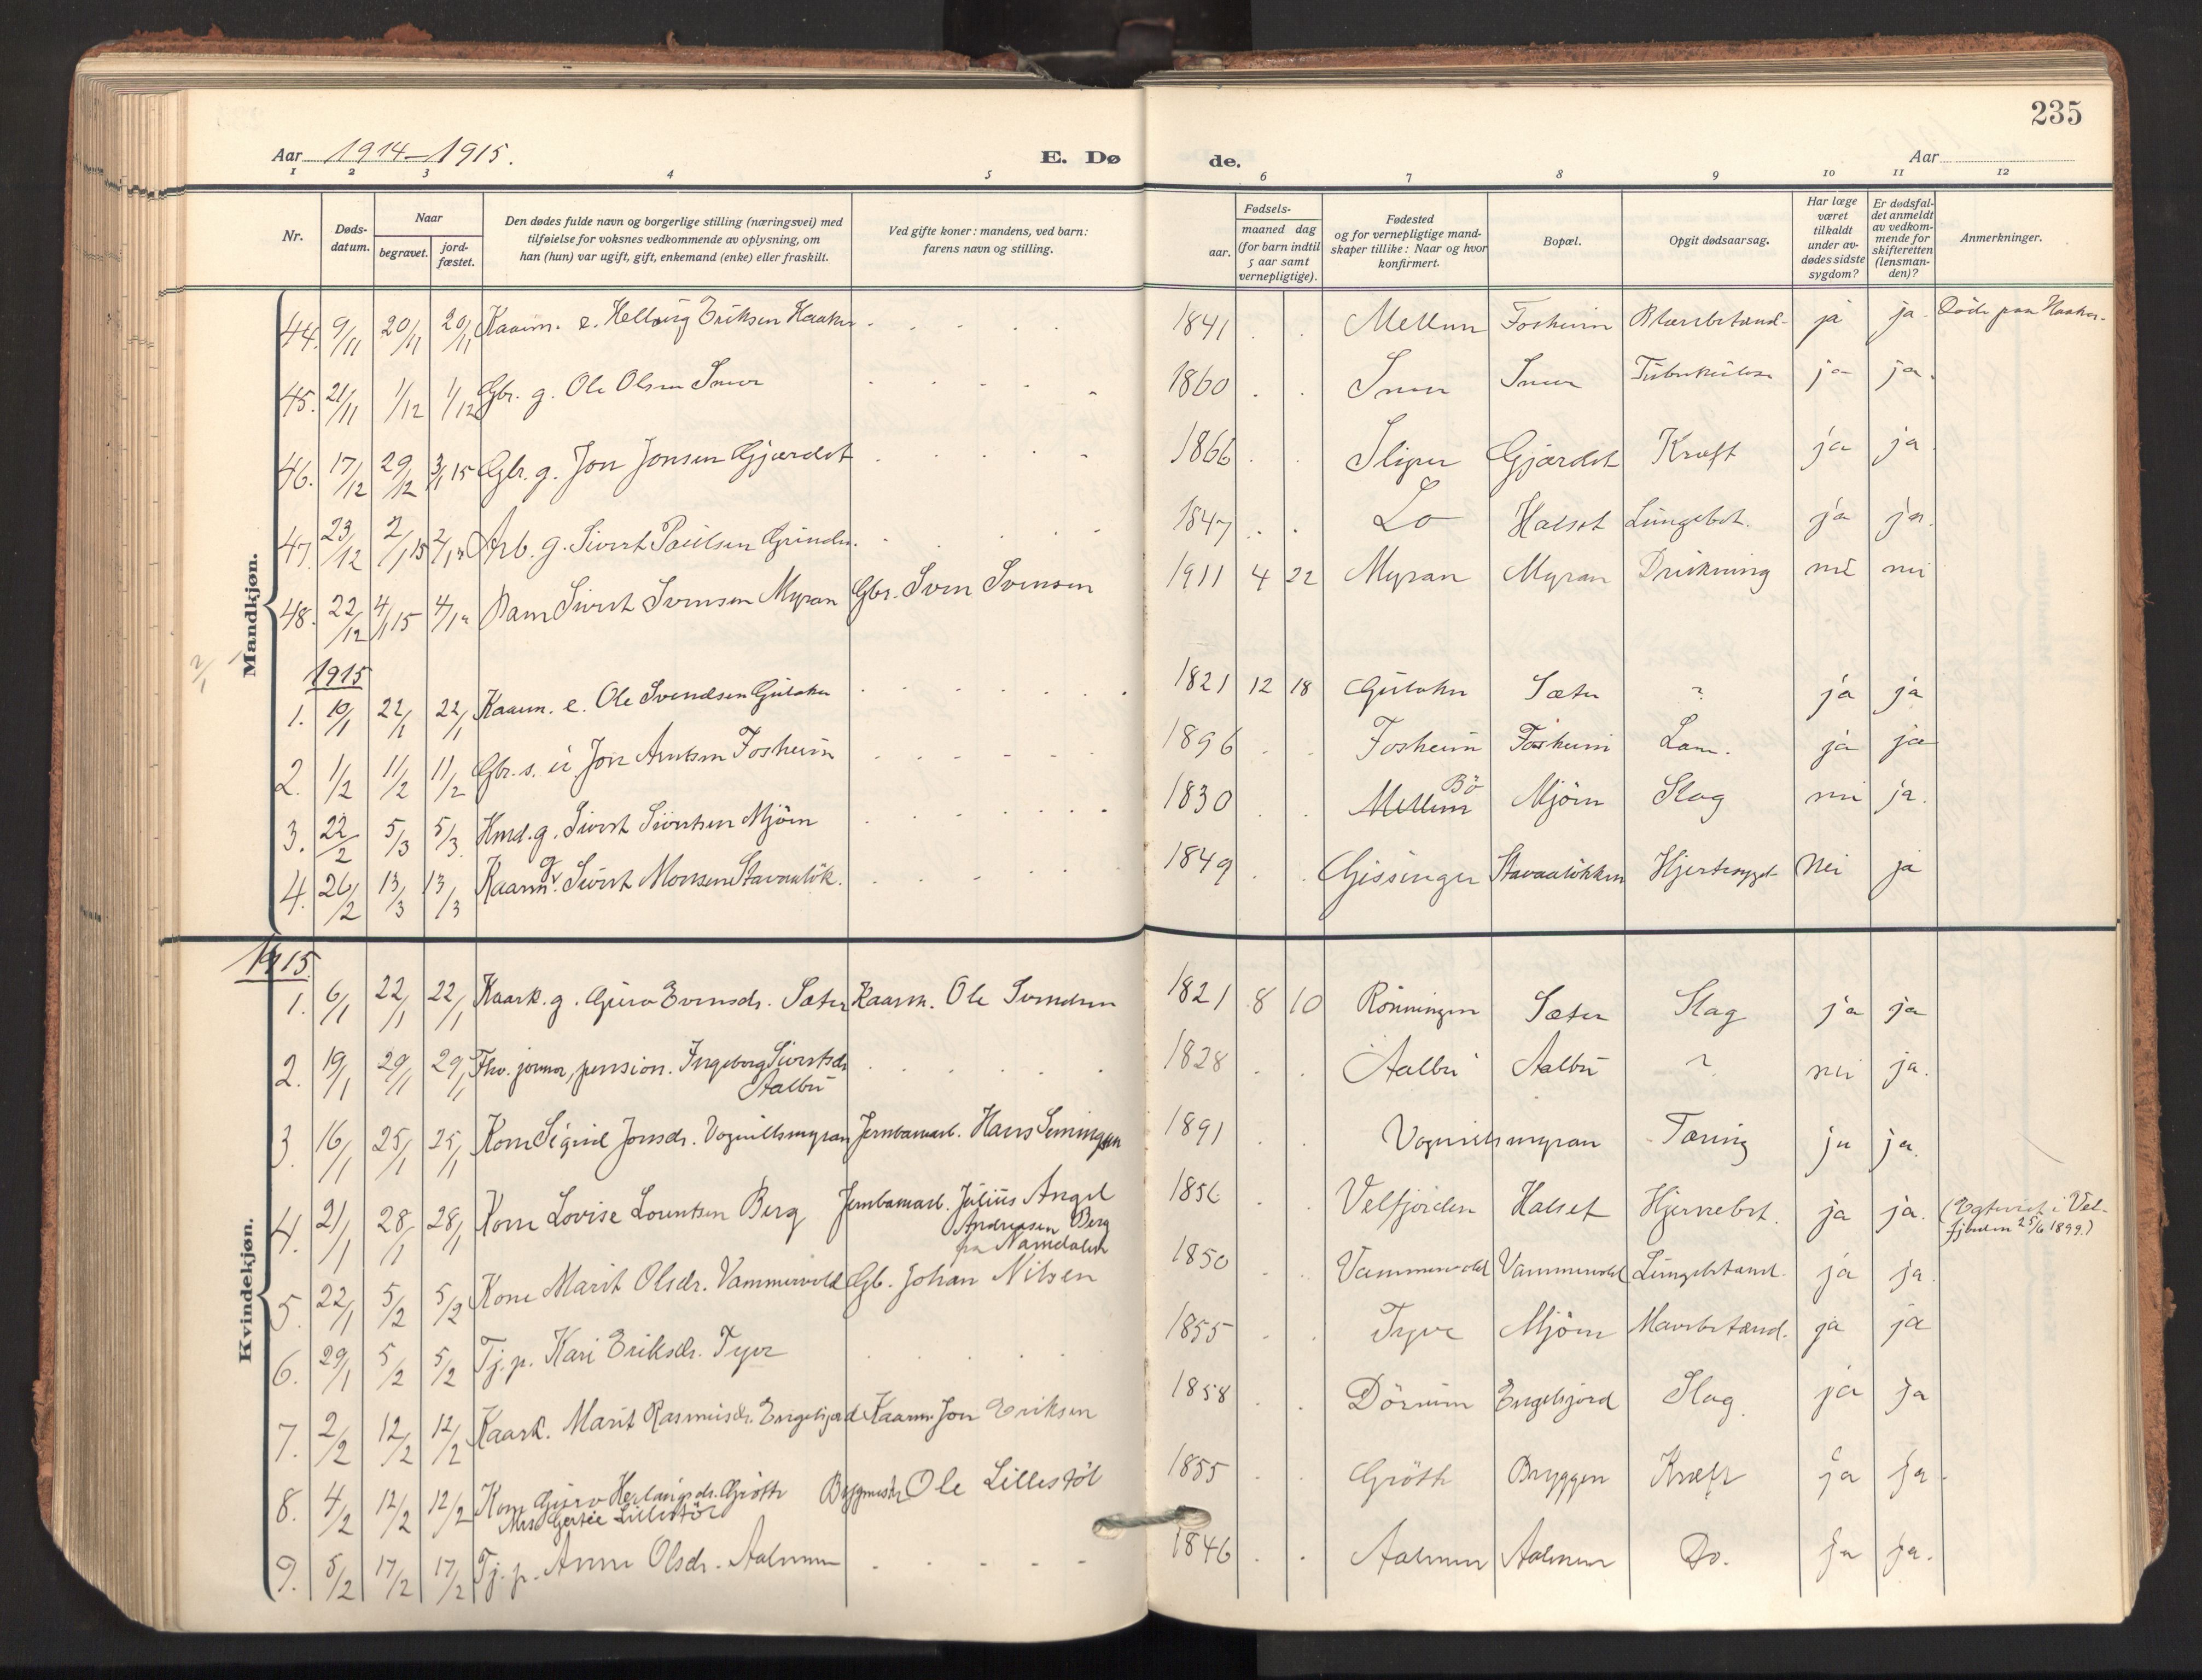 235
Aar 1914-1915.
E. Dø
de.
Aar
1 2 3 4 5 6 7 8 9 10 11 12
Nr.
Døds-
datum.
Naar
begravet.
jord-
fæstet.
Den dødes fulde navn og borgerlige stilling (næringsvei) med
tilføielse for voksnes vedkommende av oplysning, om
han (hun) var ugift, gift, enkemand (enke) eller fraskilt.
Ved gifte koner: mandens, ved barn:
farens navn og stilling.
Fødsels-
aar.
maaned dag
(for barn indtil
5 aar samt
vernepligtige).
Fødested
og for vernepligtige mand-
skaper tillike: Naar og hvor
konfirmert.
Bopæl.
Opgit dødsaarsag.
Har læge
været
tilkaldt
under av-
dødes sidste
sygdom?
Er dødsfal-
det anmeldt
av vedkom-
mende for
skifteretten
(lensman-
den)?
Anmerkninger.
Mandkjøn.
44. 9/11 20/11 20/11 Kaarm. e. Eriksen Haaker 1841 Mellem Fosheim ja ja. Døde paa Haaker.
45. 21/11 1/12 1/12 Gbr. g. Ole Olsen Snuer 1860 Snuen Snuer Tuberkulose ja ja.
46. 17/12 29/12 3/1 15 Gbr. g. Jon Jonsen Gjærdet 1866 Sliper Gjærdet Kræft ja ja
47. 23/12 2/1 15 2/1 15 Arb. g. Sivert Paulsen 1847 Lo Halset Lungebet. ja ja.
48. 22/12 4/1 15 4/1 Barn Sivert Svensen Myran Gbr. Sven Svensen 1911 4 22 Myran Myran Drukning nei nei
2/1
1915
1. 10/1 22/1 22/1 Kaarm. e. Ole Svendsen Gulaker 1821 12 18 Gulaker Sæter ? ja ja
2. 1/2 11/2 11/2 Gbr. s. u. Jon Arntsen Fosheim 1896 Fosheim Fosheim Lam. ja ja
Bö
3. 22/2 5/3 5/3 Hmd. g. Sivert Sivertsen Mjöen 1830 Mellem Mjöen Slag nei ja.
4. 26/2 13/3 13/3 Kaarm. g. Sivert Monsen Stavaalök. 1849 Gissinger Stavaalökken Hjertesygd. Nei ja
Kvindekjøn.
1915.
1. 6/1 22/1 22/1 Kaark. g. Guro Evensdr. Sæter Kaarm. Ole Svendsen 1821 8 10 Rönningen Sæter Slag ja ja
2. 19/1 29/1 29/1 Fhv. jormor, pension. Ingeborg Sivertsdr. 1828 Aalbu Aalbu ? nei ja.
Aalbu
3. 16/1 25/1 25/1 Kone Sigrid Jonsdr. Vognillsmyran Jernbanearb. Hans 1891 Vognillsmyran Tæring ja ja.
4. 21/1 28/1 28/1 Kone Lovise Lorentsen Berg Jernbanearb. Julius Angel 1856 Velfjorden Halset Hjernebet. ja ja. (Egteviet i Vel-
Andreasen Berg fjorden 25/6 1899.)
fra Namdalen
5. 22/1 5/2 5/2 Kone Marit Olsdr. Vammervold Gb. Johan Nilsen 1850 Vammervold Vammervold Lungebetænd. ja ja.
6. 29/1 5/2 5/2 Tj.p. Kari Eriksdr. Tyve 1855 Tyve Mjöen Mavebetænd. ja ja
7. 2/2 12/2 12/2 Kaark. Marit Rasmusdr. Engelsjord Kaarm. Jon Eriksen 1858 Dörum Engelsjord Slag. ja ja
8. 4/2 12/2 12/2 Kone Guro Grötte Bygmester Ole Lillestöl 1855 Grötte Bryggen Kræft ja ja.
Mrs Lillestöl
9. 5/2 17/2 17/2 Tj.p. Anne Olsdr. Aalmen 1846 Aalmen Aalmen Do. ja ja.